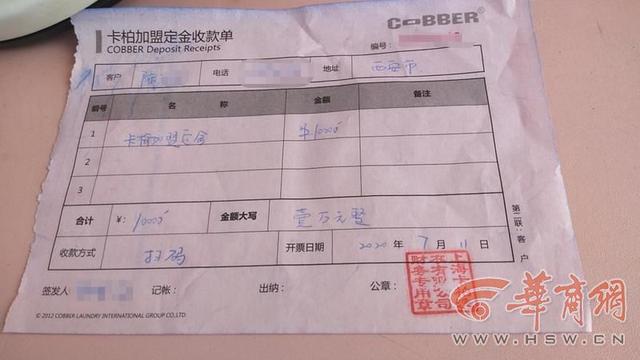 卡柏加盟定金收款单
COBBER
COBBER Deposit Receipts
编号:
客户 陈 电话 地址 西安市
编号 名 称 金额 备注
1 卡柏加盟定金 ¥:10000
2
3
合计 ¥: 10000 金额大写 壹万元整
收款方式 扫码 开票日期 2020 年 7 月 11 日
第二联:客户
签发人: 记帐: 出纳: 公章:
上海卡
有限公司
财务专用章
© 2012 COBBER LAUNDRY INTERNATIONAL GROUP CO.,LTD.
華商網
WWW.HSW.CN